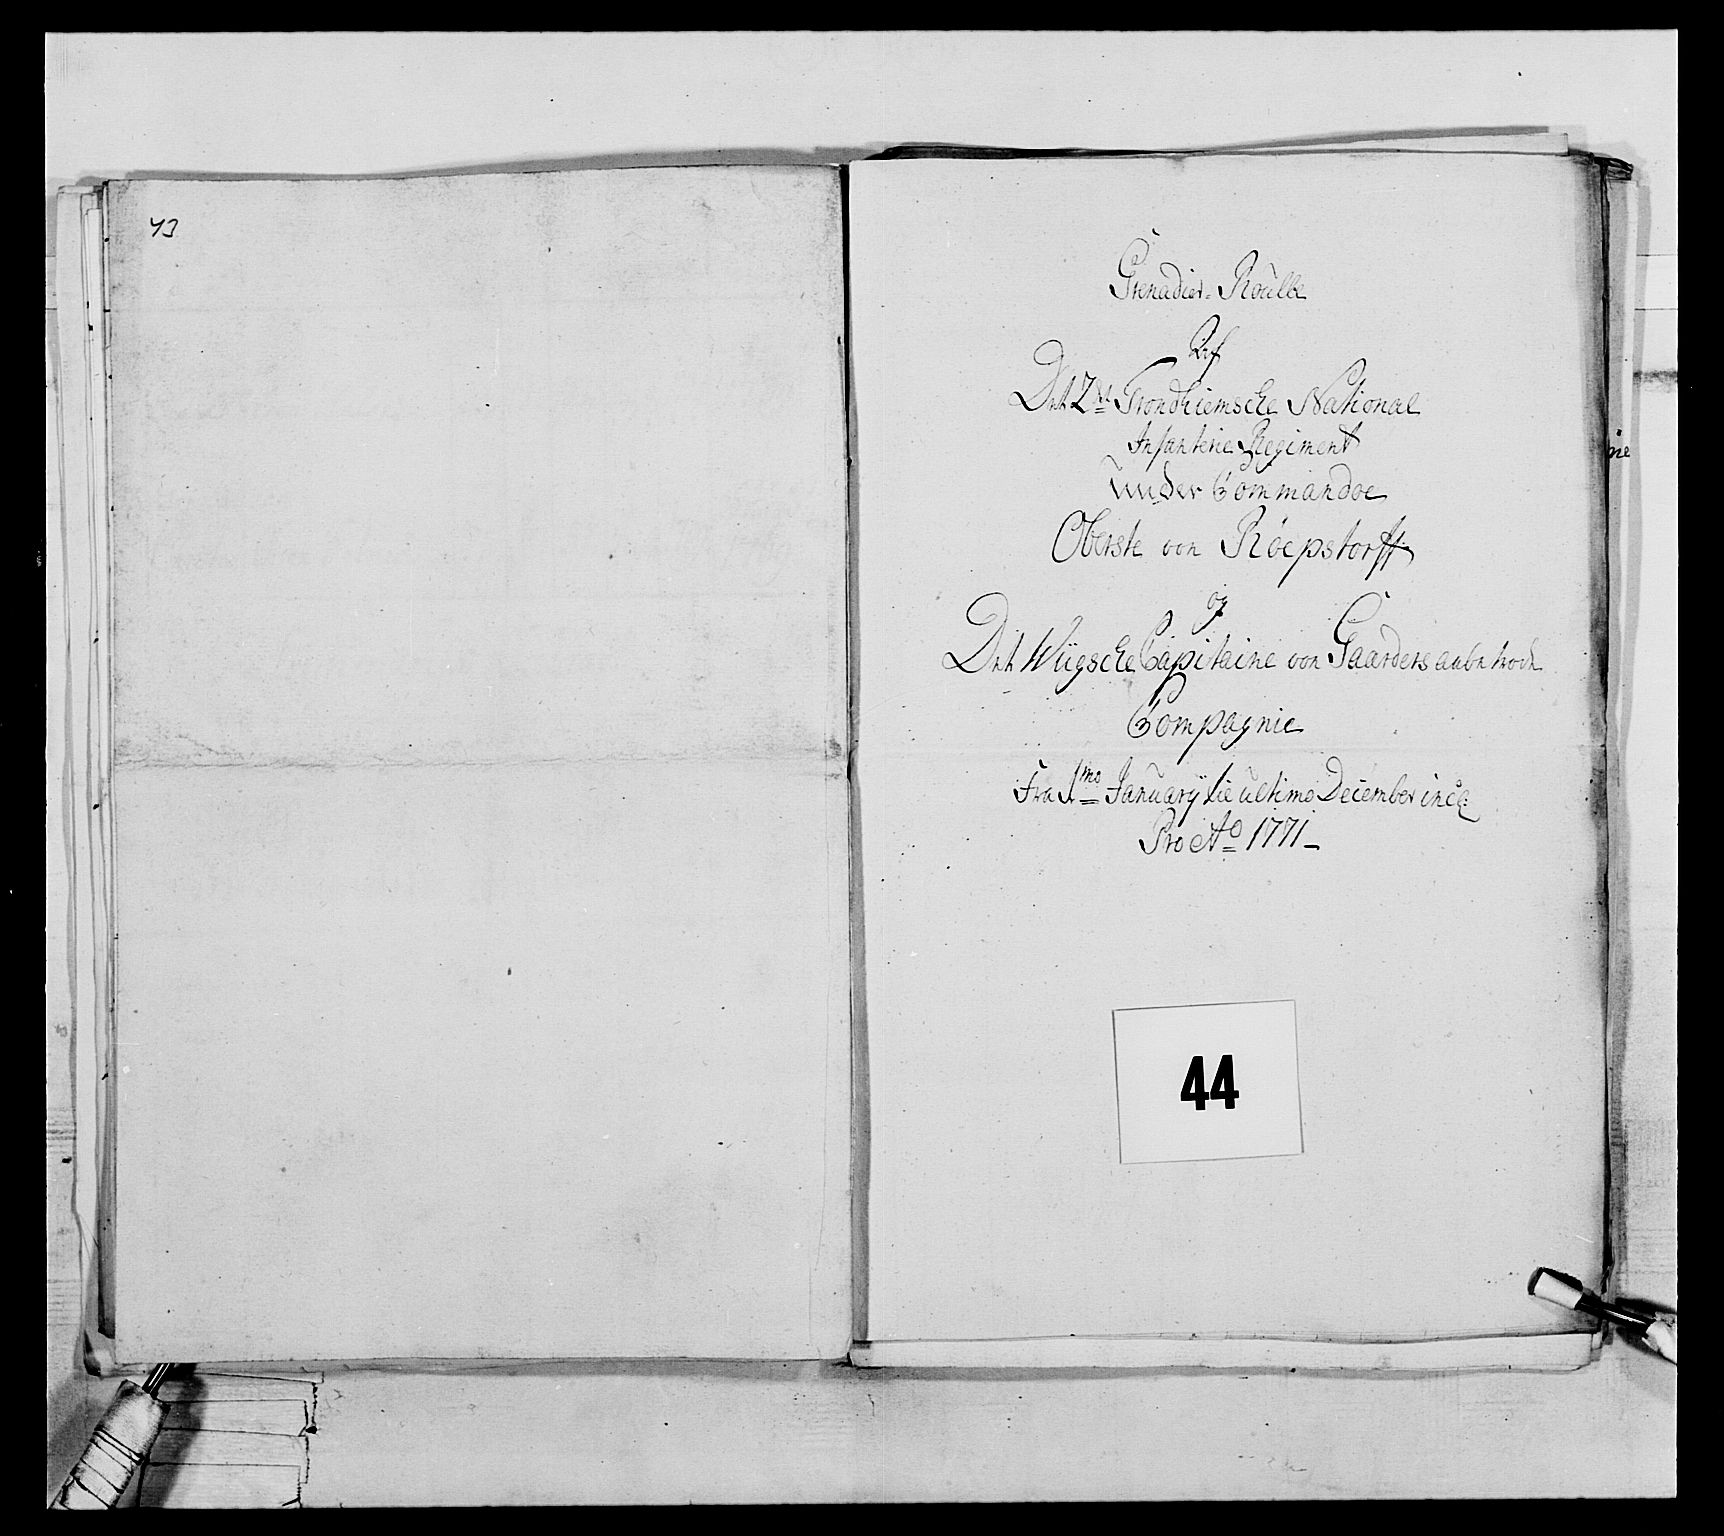 43
Grenadier-Roulle
Af
Det 2det Trondhiemsche National
Infanterie Regiment
under Commandoe
Oberste von Röepstorff
og
Det Wügsche Capitaine von Gaarders
Compagnie
Fra 1mo January tie ultimo December incl:
Pro Ao 1771
44